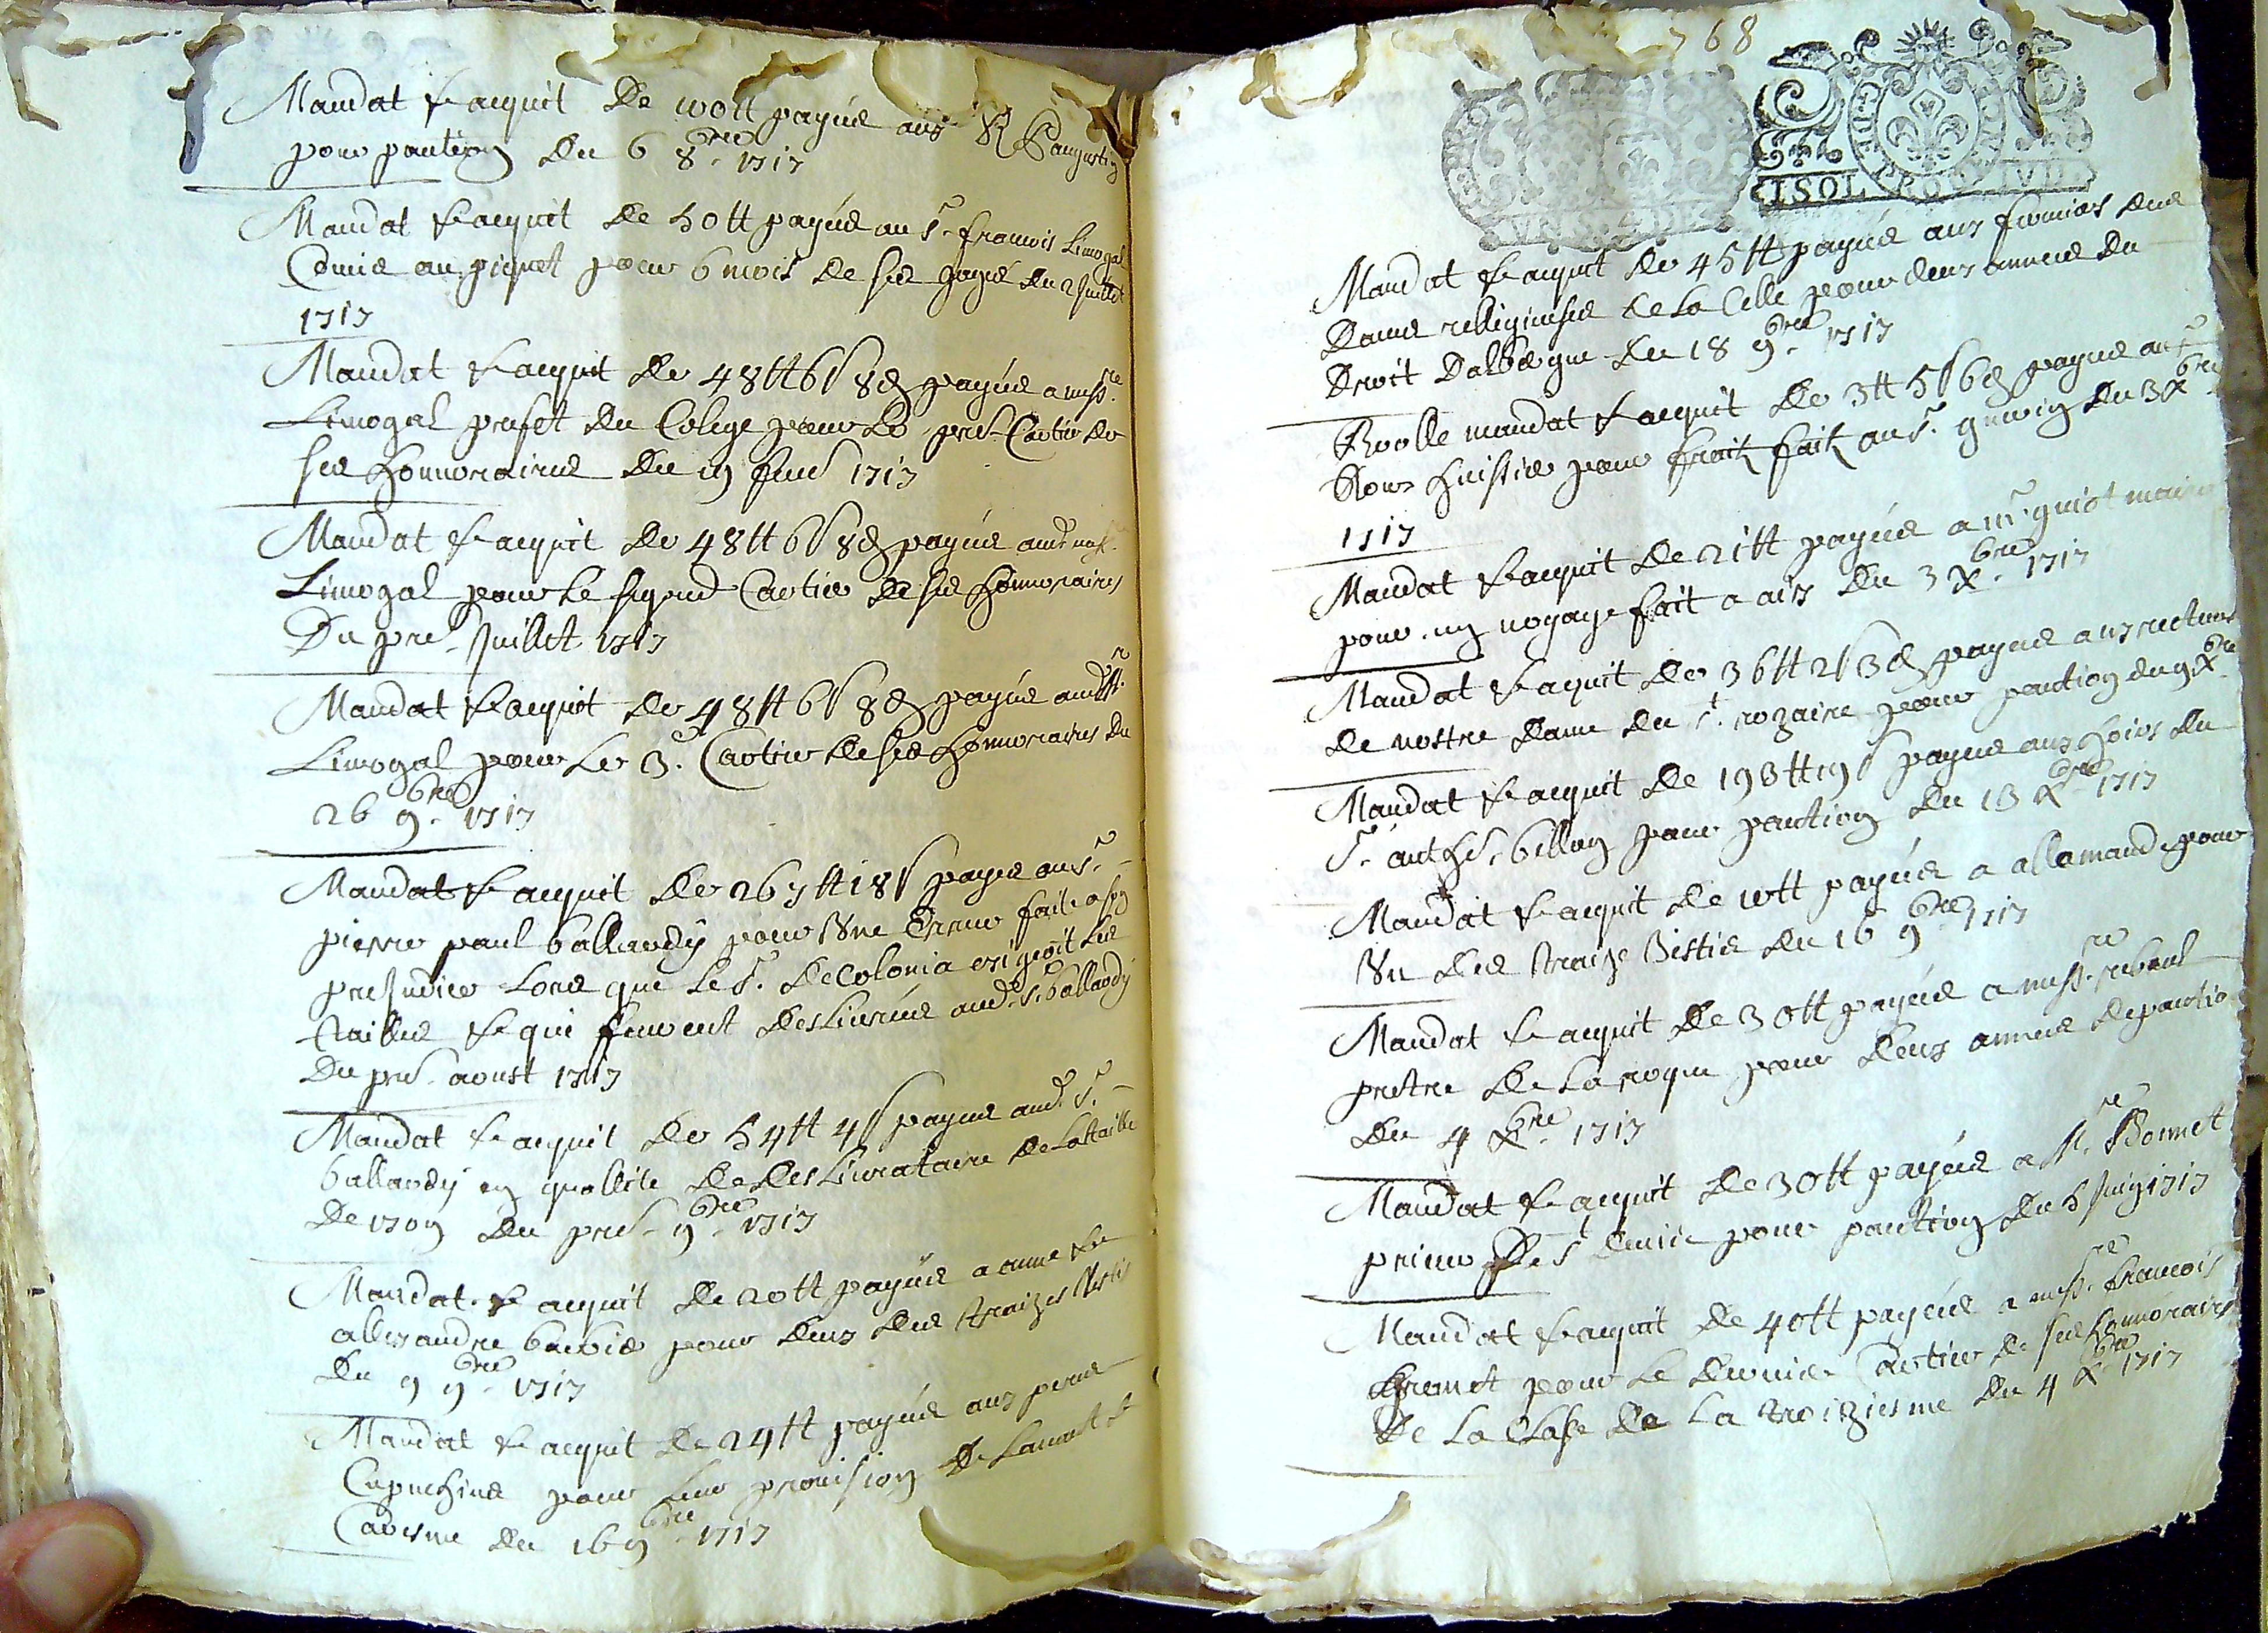 Mandat & acquit de 100 tt payée aux RR P augustin
pour pantion du 6 8bre 1717
Mandat & acquit de 50 tt payée au sr francois Limogal
Comis au piquet pour 6 mois de ses gages du 2 Juillet
1717
Mandat & acquit de 48 tt 6 s 8 d payée a messre
Limogal prefet du Colege pour le pre Cartier de
ses honnoraires du 1717
Mandat & acquit de 48 tt 6 s 8 d payée aud messre
Limogal pour le segond Cartier de ses honnoraires
Du pre Juillet 1717
Mandat & acquit de 48 tt 6 s 8 d payée aud
Limogal pour le 3e Cartier de ses honnoraires du
26 9bre 1717
Mandat & acquit de 267 tt 18 s payée au sr
pierre paul ballardy pour Une Erreur faite a son
prejudice lors que le sr de Colonia exigeoit les
tailles & qui feurent deslivrées aud sr ballardy
Du pre aoust 1717
Mandat & acquit de 54 tt 4 s payée aud sr
ballardy en quallite de deslivrataire de la taille
De 1709 du pre 9bre 1717
Mandat & acquit de 20 tt payée a anne &
allexandre barbié pour deux des traizes
du 9 9bre 1717
Mandat & acquit de 24 tt payée aux peres
Capuchins pour leur provision de Lavant &
Caresme du 16 9bre 1717
768
ISOL
Mandat & acquit de 45 tt payée aux fermiers des
Dames religieuses de la Celle pour deux années du
Droit Dalbergue du 18 9bre 1717
Roolle mandat & acquit de 3 tt 5 s 6 d payée au sr
Roux huissier pour frait fait au sr du 3 xbre
1717
Mandat & acquit de 21 tt payée a mr guiot maire
pour un voyage fait a aix du 3 xbre 1717
Mandat & acquit de 36 tt 2 s 3 d payée aux recteurs
de nostre dame du st rozaire pour pantion du 9 xbre
Mandat & acquit de 193 tt 19 s payée aux hoirs du
sr billon pour pantion du 13 xbre 1717
Mandat & acquit de 10 tt payée a allamande pour
Un des traize du 16 9bre 1717
Mandat & acquit de 30 tt payée a messre reboul
pretre de la roque pour deux années de pantio
du 4 xbre 1717
Mandat & acquit de 30 tt payée a Mre Bonnet
prieur de st pour pantion du 5 Juin 1717
Mandat & acquit de 40 tt payée a messre francois
pour le dernier Cartier de ses honnoraires
De la Classe de la troiziesme du 4 xbre 1717